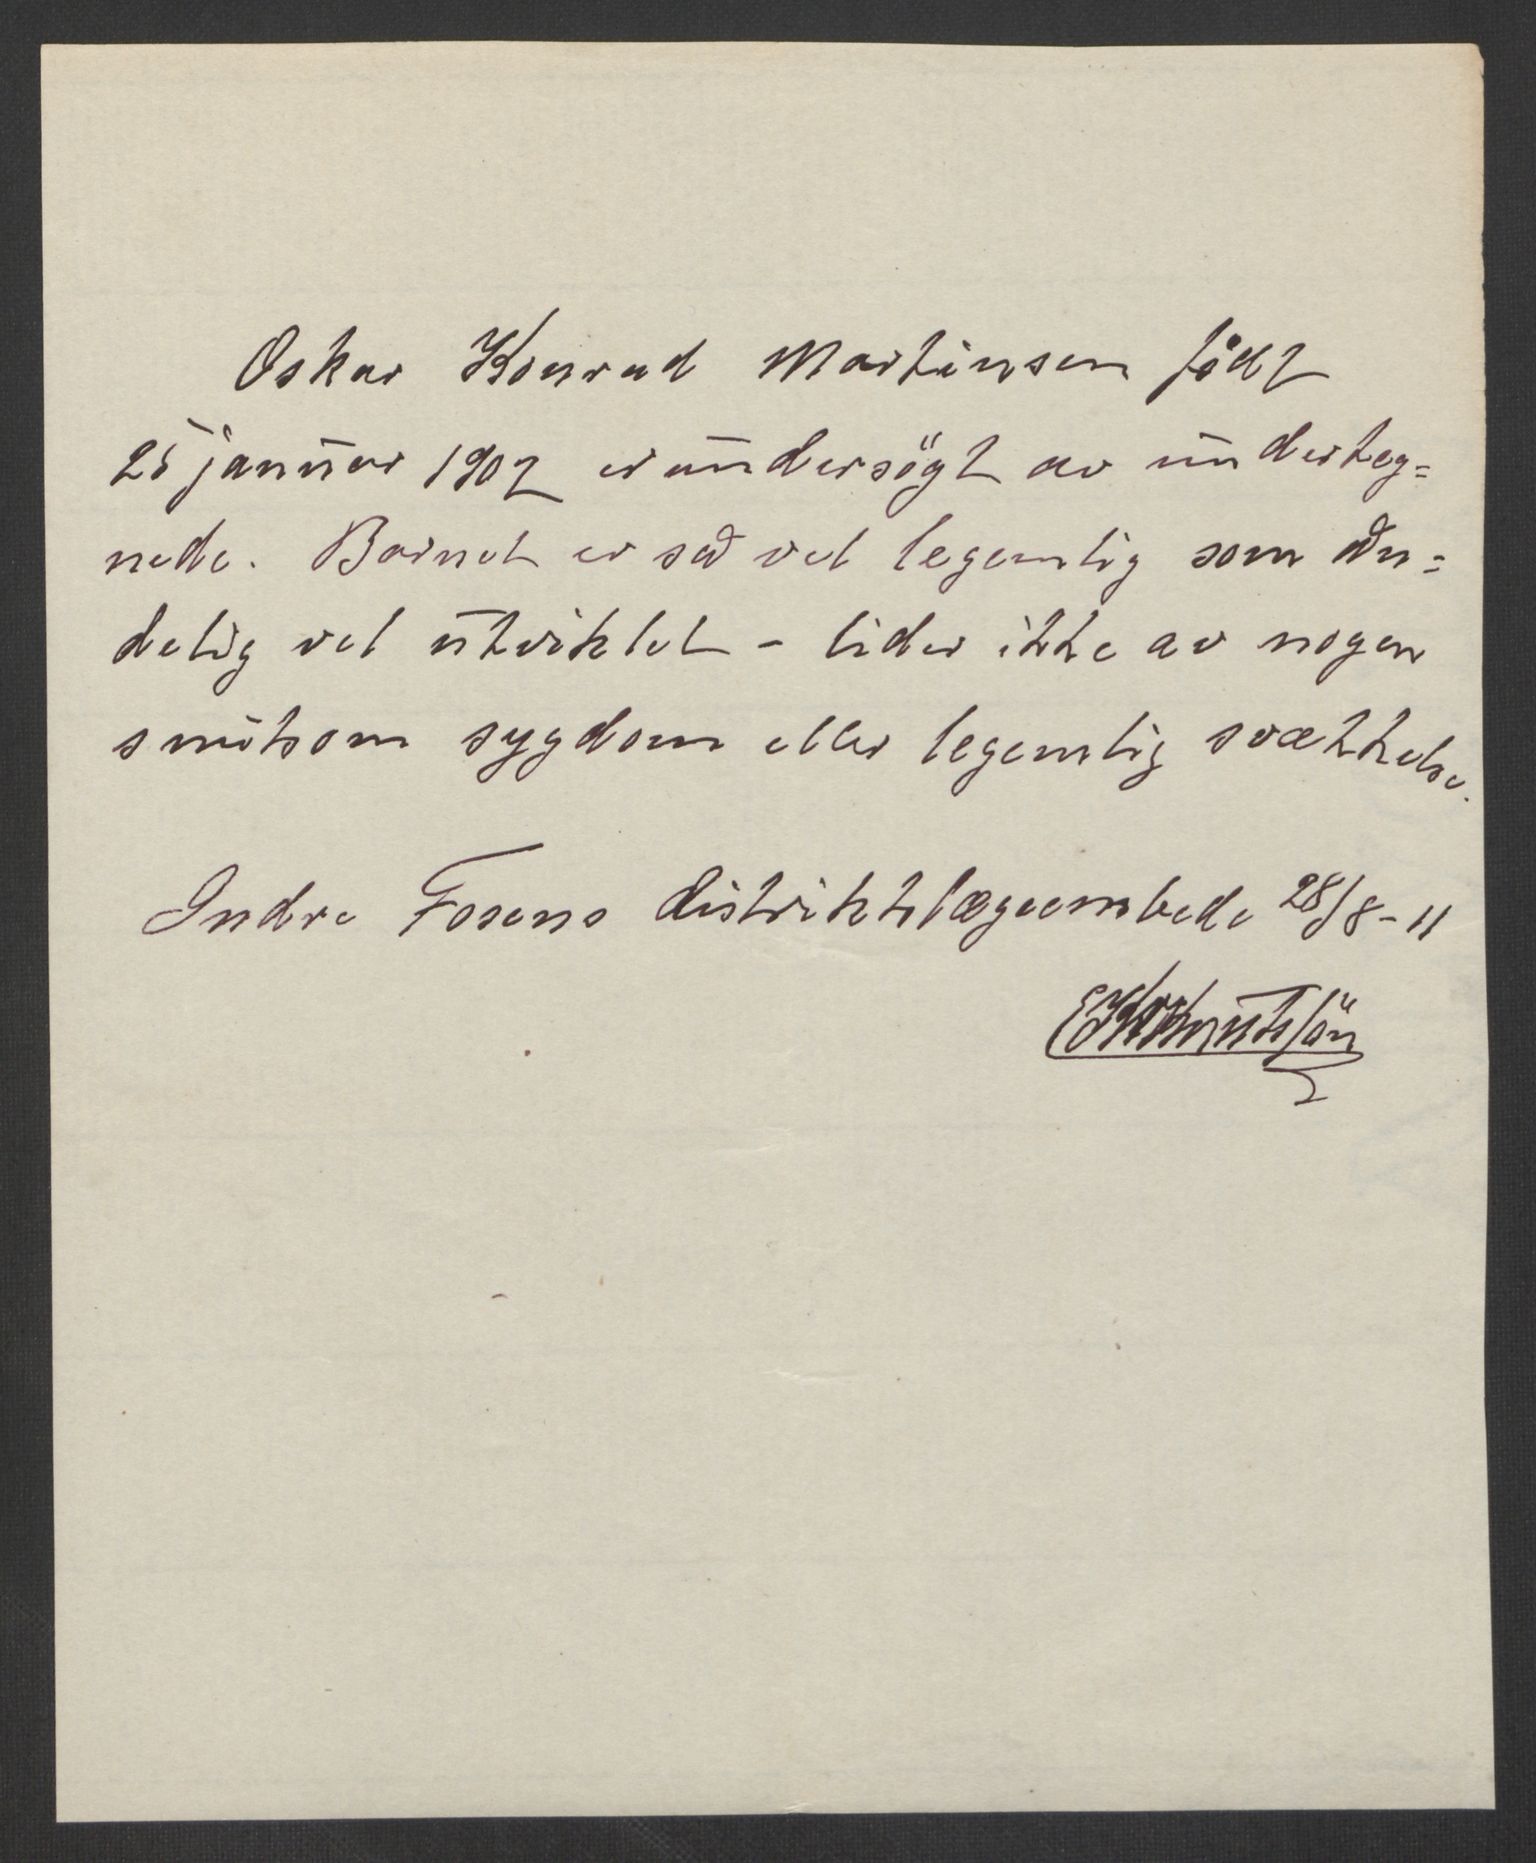 Oskar Konrad Martinsen födt
25 januar 1902 er undersögt av underteg=
nede. Barnet er så vel legemlig som ån=
delig vel utviklet - lider ikke av nogen
smitsom sygdom eller legemlig svækkelse.
Indre Fosens distriktslægeembede 28/8-11